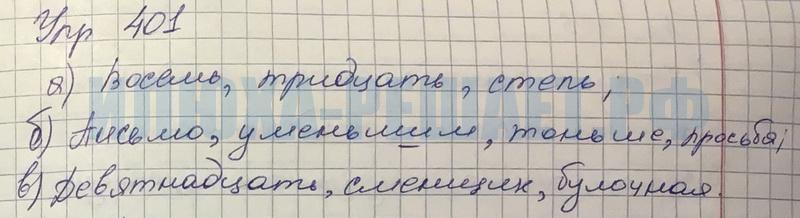 Упр 401
а) Восемь, тридцать, степь,
б) Письмо, уменьшим, тоньше, просьба,
в) Девятнадцать, сменщик, булочная.
ИЛЮХА-РЕШАЕТ.РФ